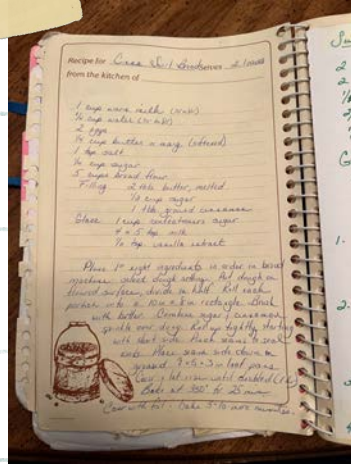 Recipe for Cinna Swirl Bread serves 2 loaves
from the kitchen of
1 cup warm milk
1/4 cup water
2 eggs
1/4 cup butter or marg (softened)
1 tsp salt
1/4 cup sugar
5 cups bread flour
Filling 2 tbls butter, melted
1/3 cup sugar
1 tbls ground cinnamon
Glaze 1 cup confectioners sugar
4 to 5 tsp milk
vanilla extract
Place 1st eight ingredients in order in bread
machine select dough setting. Put dough on
floured surface, divide in half. Roll each
portion into a 10 in x 8 in rectangle. Brush
with butter. Combine sugar & cinnamon
sprinkle over dough. Roll up tightly starting
with short side. Pinch seams to seal
ends. Place seam side down in
greased 9 x 5 x 3 in loaf pans.
Cover & let rise until doubled
Bake at 350° for 25 min
Cover with foil. Bake 5-10 more minutes.
1.
2.